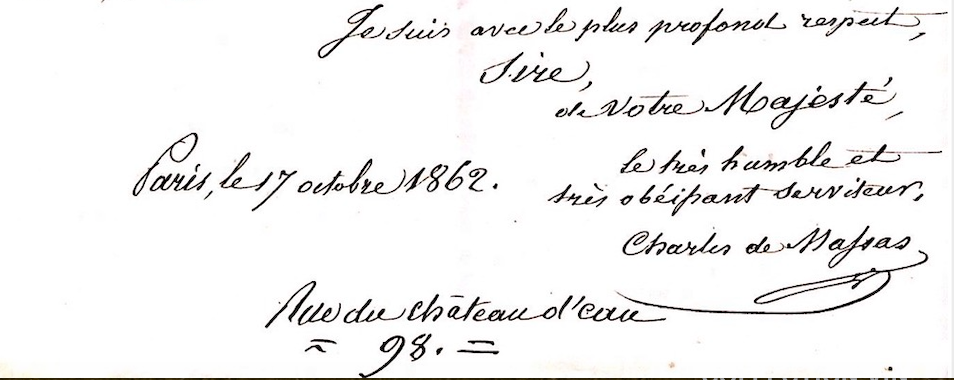 Je suis avec le plus profond respect,
Sire,
de Votre Majesté,
le très humble et
Paris, le 17 octobre 1862.
très obéissant serviteur,
Charles de Massas
Rue du Château d'eau
= 98. =